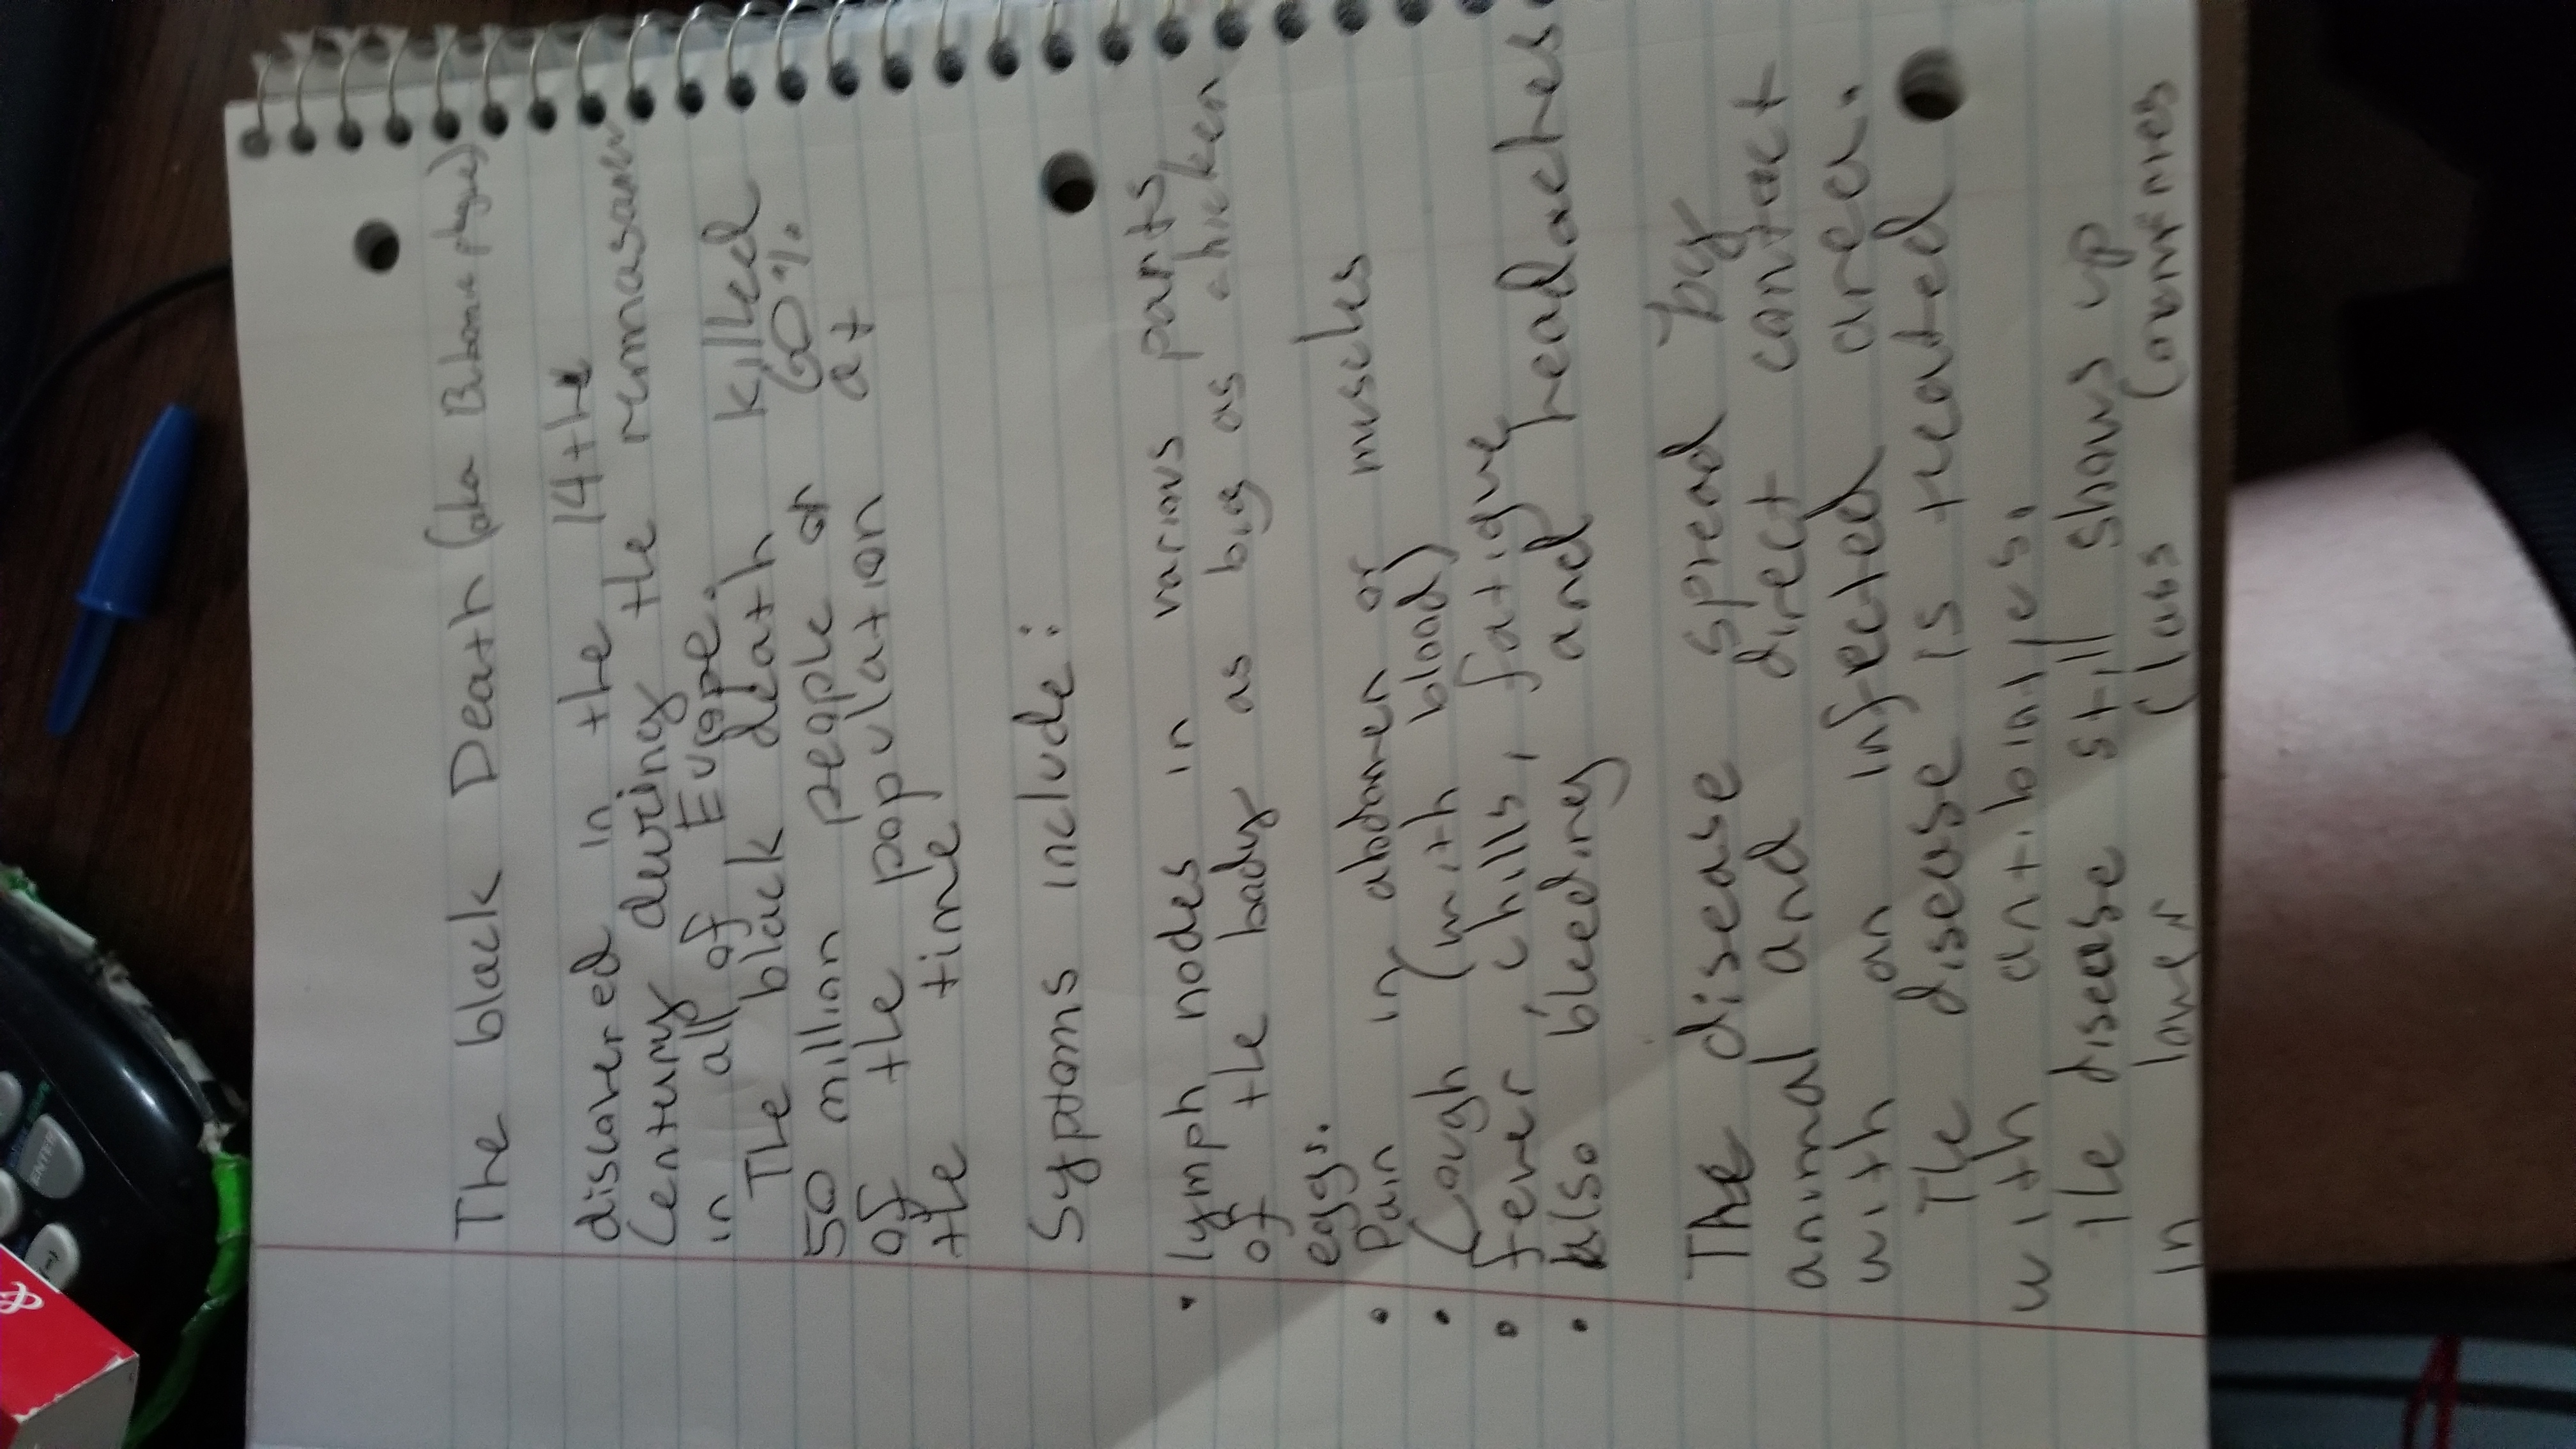 The black Death (aka Bubonic plague)
discovered in the 14the
Century during the rennasance
in all of Europe.
The black death killed
50 million people or 60%
of the population at
the time
Syptoms include:
• lymph nodes in various parts
of the body as big as chicken
eggs.
• Pain in abdomen or muscles
• Cough (with blood)
• fever chills, fatigue
• Also bleeding and headaches.
The disease spread by
animal and direct contact
with an infected area.
The disease is treated
with antibioties.
The disease still shows up
in lower class countries
ENTER